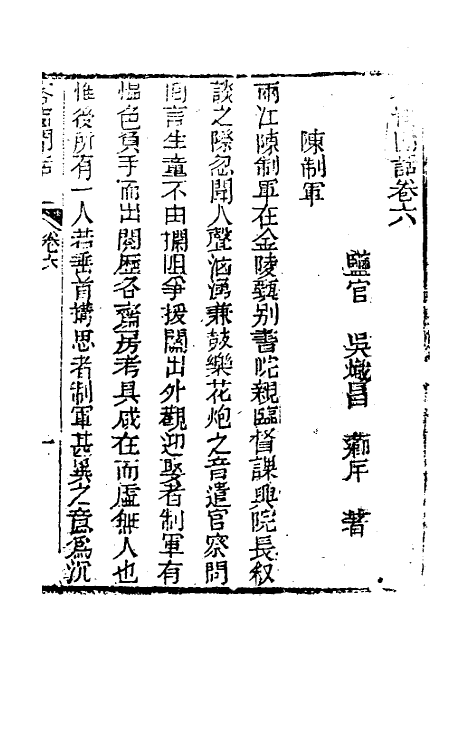 客窗閒話卷六
鹽官 吳熾昌 薌厈 著
陳制軍
兩江陳制軍在金陵甄别書院親臨督課與院長叙
談之際忽聞人聲洶湧兼鼓樂花炮之音遣官察問
囘言生童不由攔阻爭援闗出外觀迎娶者制軍有
愠色負手而出閱歷各齋房考具咸在而虛無人也
惟後所有一人若垂首搆思者制軍甚異之意爲沉
客窗閒話 卷六 一